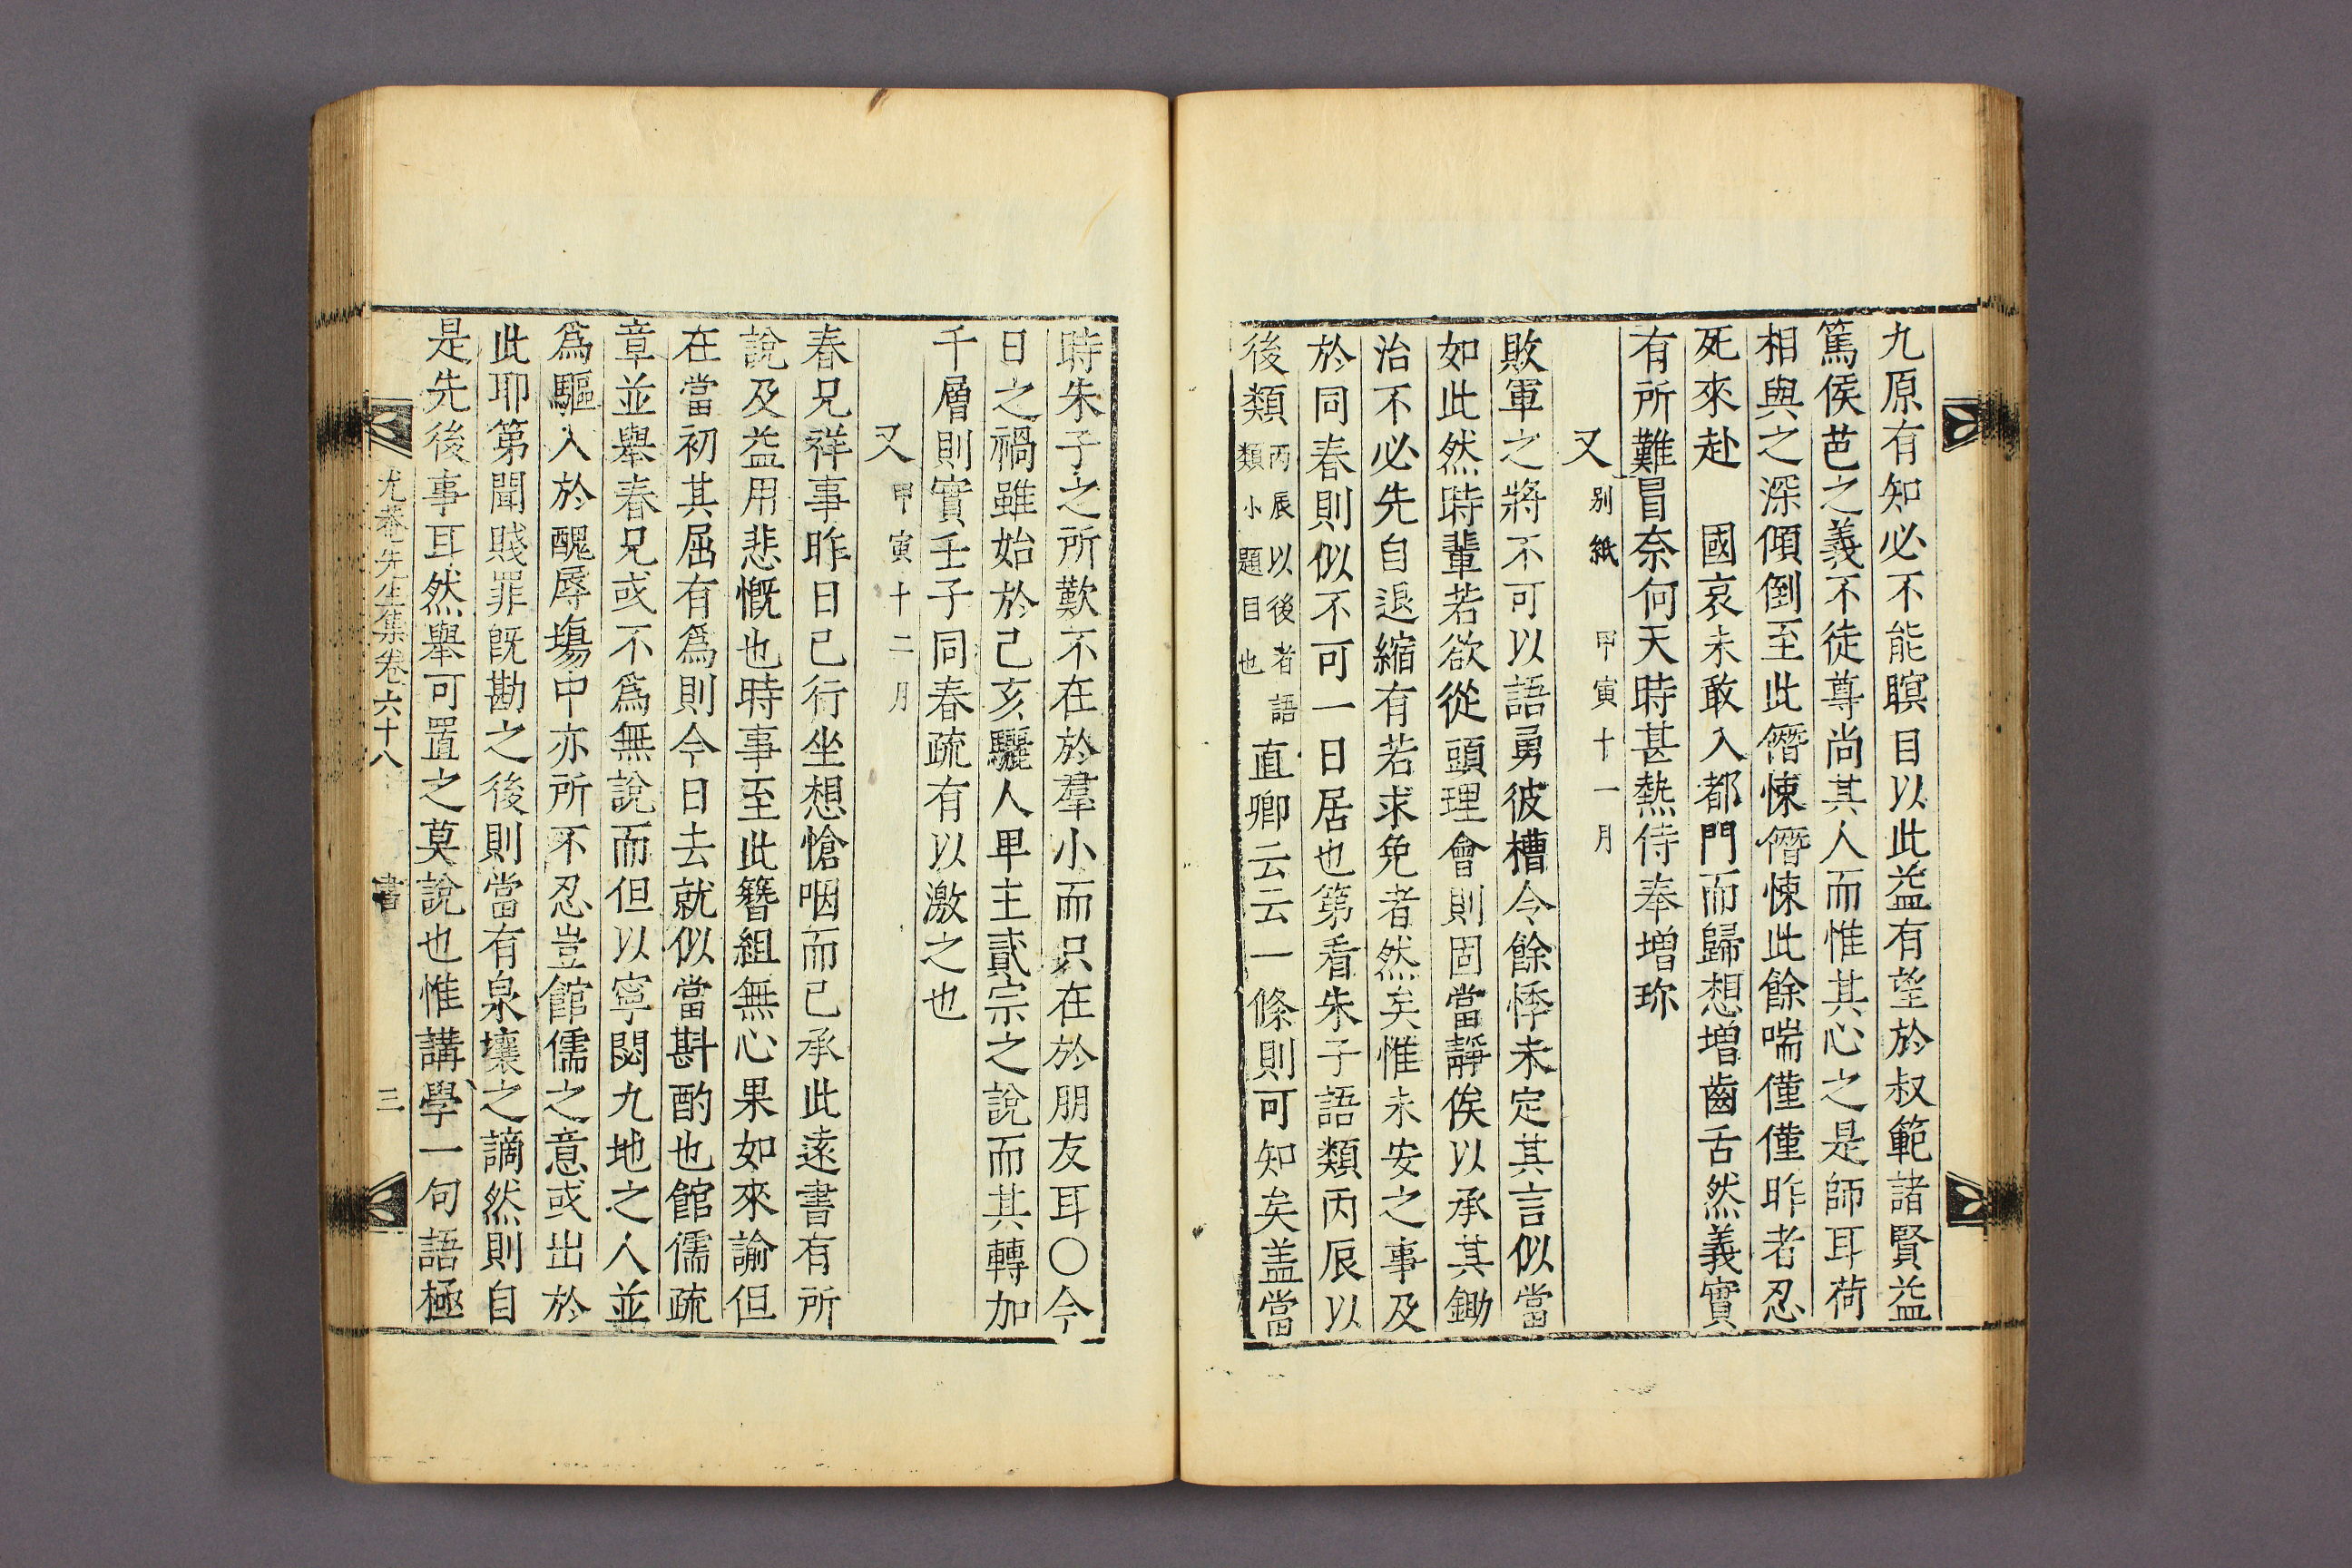 九原有知必不能瞑目以此益有望於叔範諸賢益
篤侯芭之義不徒尊尚其人而惟其心之是師耳荷
相與之深傾倒至此僭悚僭悚此餘喘僅僅昨者忍
死來赴　國哀未敢入都門而歸想增齒舌然義實
有所難冒奈何天時甚熱侍奉增珎
又 別紙　甲寅十一月
敗軍之將不可以語勇彼槽令餘悸未定其言似當
如此然時輩若欲從頭理會則固當靜俟以承其鋤
治不必先自退縮有若求免者然矣惟未安之事及
於同春則似不可一日居也第看朱子語類丙辰以
後類 丙辰以以後者語類小題目也 直卿云云一條則可知矣盖當
時朱子之所歎不在於羣小而只在於朋友耳○今
日之禍雖始於己亥驪人卑主貳宗之說而其轉加
千層則實壬子同春疏有以激之也
又 甲寅十二月
春兄祥事昨日已行坐想愴咽而已承此遠書有所
說及益用悲慨也時事至此簪組無心果如來諭但
在當初其屈有爲則今日去就似當斟酌也館儒疏
章並舉春兄或不爲無說而但以寧閟九地之人並
爲驅入於醜辱塲中亦所不忍豈館儒之意或出於
此耶第聞賤罪旣勘之後則當有泉壤之謫然則自
是先後事耳然舉可置之莫說也惟講學一句語極
尤菴先生集卷六十八　書　三